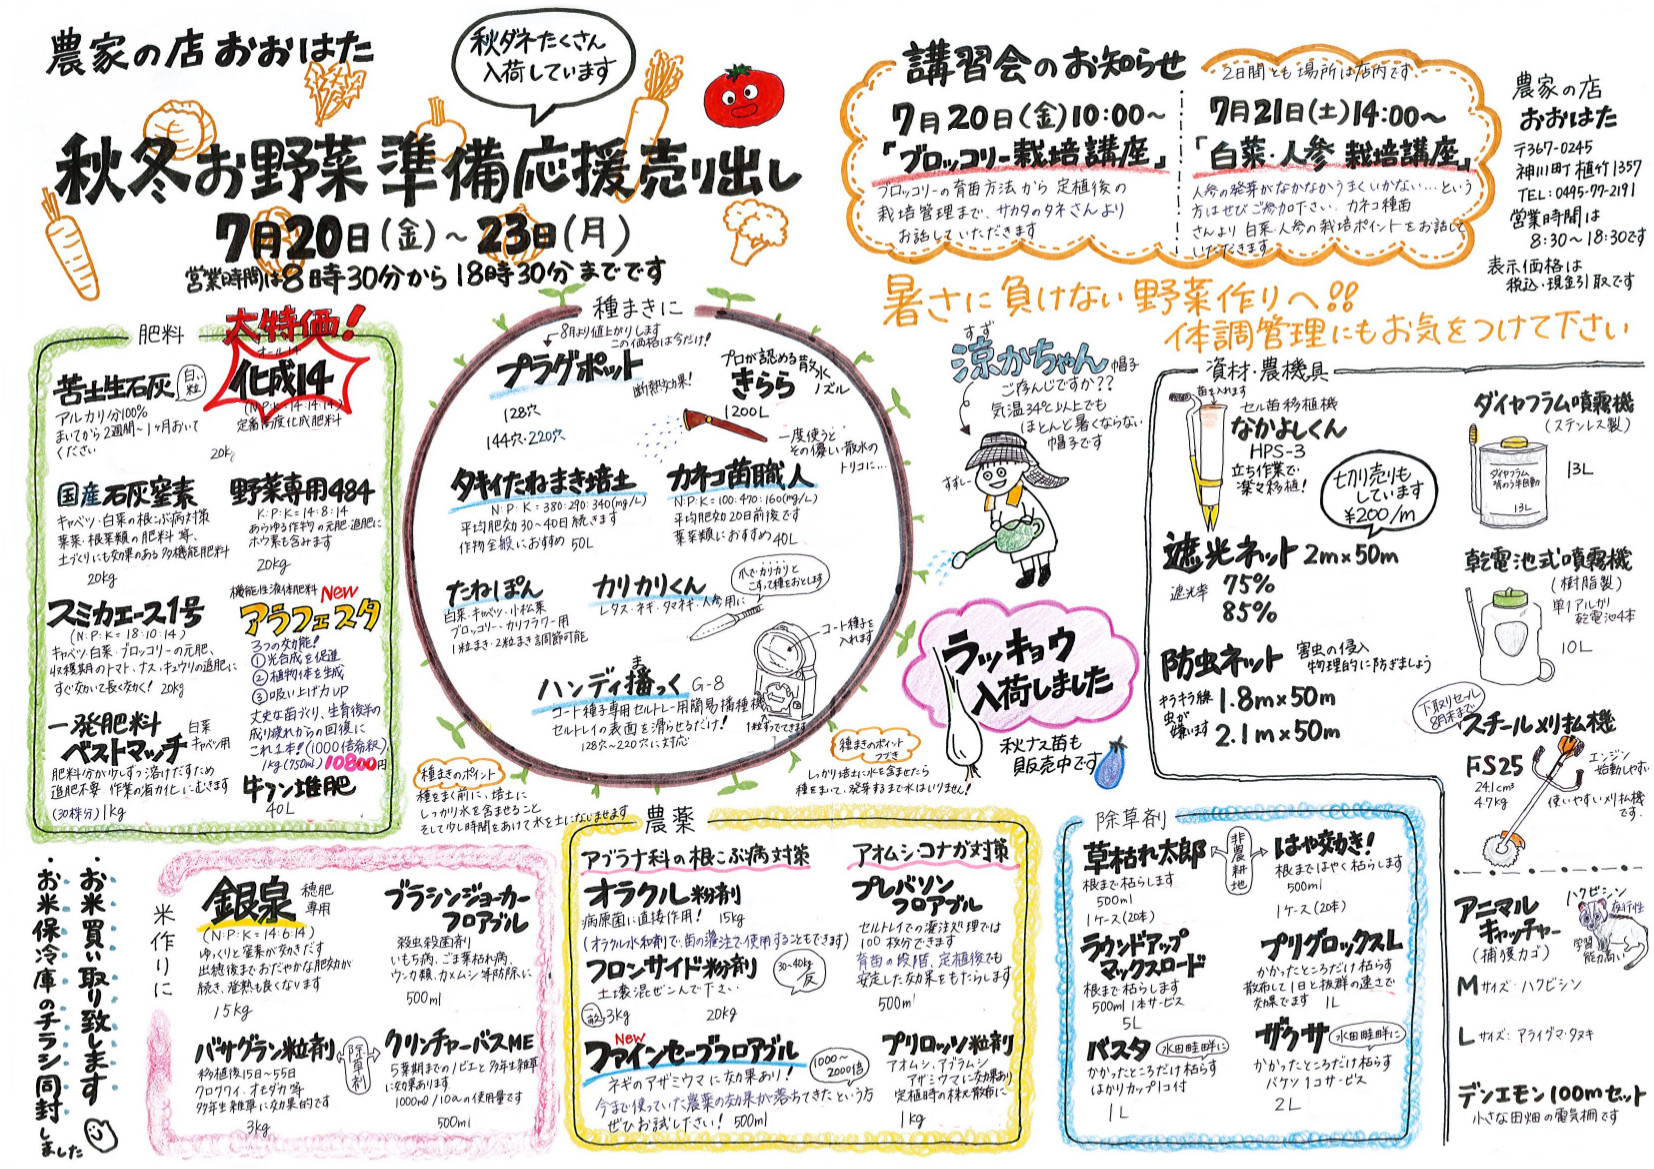 農家の店 おおはた
秋ダネたくさん
入荷しています
秋冬お野菜準備応援売り出し
7月20日(金)~23日(月)
営業時間は8時30分から18時30分までです
講習会のお知らせ
2日間とも場所は店内です
7月20日(金)10:00~
「ブロッコリー栽培講座」
ブロッコリーの育苗方法から定植後の
栽培管理まで、サカタのタネさんより
お話していただきます
7月21日(土)14:00~
「白菜・人参 栽培講座」
人参の発芽がなかなかうまくいかない…という
方はぜひご参加下さい。カネコ種苗
さんより白菜・人参の栽培ポイントをお話して
いただきます
農家の店
おおはた
〒367-0245
神川町植竹1357
TEL:0495-77-2191
営業時間は
8:30~18:30です
表示価格は
税込・現金引取です
暑さに負けない野菜作りへ!!
体調管理にもお気をつけて下さい
肥料
大特価!
オール14
化成14
(N・P・K=14・14・14)
定番高度化成肥料
20kg
苦土生石灰
白い粒
アルカリ分100%
まいてから2週間~1ヶ月おいて
ください
国産石灰窒素
キャベツ・白菜の根こぶ病対策
葉菜・根菜類の肥料等、
土づくりにも効果のある多機能肥料
20kg
野菜専用484
N・P・K=14・8・14
あらゆる作物の元肥・追肥に
ホウ素も含みます
20kg
スミカエース1号
(N・P・K=18・10・14)
キャベツ・白菜・ブロッコリーの元肥、
収穫期のトマト、ナス、キュウリの追肥に
すぐ効いて長く効く! 20kg
機能性液体肥料 New
アラフェスタ
3つの効能!
①光合成を促進
②植物体を生成
③吸い上げ力UP
丈夫な苗づくり、生育後半の
成り疲れからの回復に
これ1本!(1000倍希釈)
1kg(750mL) 10800円
一発肥料
ベストマッチ
白菜
キャベツ用
肥料分が少しずつ溶けだすため
追肥不要・作業の省力化にむきます
(30株分)1kg
牛フン堆肥
40L
種まきに
8月より値上がりします
この価格は今だけ!
プラグポット
断熱効果!
128穴
144穴・220穴
プロが認める散水ノズル
きらら
1200L
一度使うと
その優しい散水の
トリコに…
タキイたねまき培土
N・P・K=380・290・340(mg/L)
平均肥効30~40日続きます
作物全般におすすめ 50L
カネコ苗職人
N・P・K=100・470・160(mg/L)
平均肥効20日前後です
葉菜類におすすめ 40L
たねぽん
白菜・キャベツ・小松菜
ブロッコリー・カリフラワー用
1粒まき・2粒まき調節可能
カリカリくん
レタス・ネギ・タマネギ・人参用に
爪でカリカリと
こすって種をおとします
ハンディ播っく G-8
ま
コート種子専用セルトレー用簡易播種機
セルトレイの表面を滑らせるだけ!
128穴~220穴に対応
コート種子を
入れます
1粒ずつでてきます
種まきのポイント
種をまく前に、培土に
しっかり水を含ませること
そして少し時間をあけて水を土になじませます
種まきのポイント
つづき
しっかり培土に水を含ませたら
種をまいて、発芽するまで水はいりません!
すず
涼かちゃん 帽子
ご存んじですか??
気温34℃以上でも
ほとんど暑くならない
帽子です
すずしー
ラッキョウ
入荷しました
秋ナス苗も
販売中です
資材・農機具
苗を入れます
セル苗移植機
なかよしくん
HPS-3
立ち作業で
楽々移植!
切り売りも
しています
¥200/m
遮光ネット 2m×50m
遮光率 75%
85%
防虫ネット
害虫の侵入
物理的に防ぎましょう
キラキラ線
虫が
嫌います
1.8m×50m
2.1m×50m
ダイヤフラム噴霧機
(ステンレス製)
13L
乾電池式噴霧機
(樹脂製)
単1アルカリ
乾電池4本
10L
下取りセール
8月末まで
スチールメリ払機
FS25
24.1cm³
4.7kg
エンジン
始動しやすい
使いやすいメリ払機
です
アニマル
キャッチャー
(捕獲カゴ)
ハクビシン
夜行性
学習
能力高い
Mサイズ:ハクビシン
Lサイズ:アライグマ・タヌキ
デンエモン100mセット
小さな田畑の電気柵です
・お米買い取り致します
・お米保冷庫のチラシ同封しました
米作りに
銀泉
穂肥
専用
(N・P・K=14・6・14)
ゆっくりと窒素が効きだす
出穂後までおだやかな肥効が
続き、登熟も良くなります
15kg
ブラシンジョーカー
フロアブル
殺虫殺菌剤
いもち病、ごま葉枯れ病、
ウンカ類、カメムシ等防除に
500ml
バサグラン粒剤
除草剤
移植後15日~55日
クログワイ、オモダカ等
多年生雑草に効果的です
3kg
クリンチャーバスME
5葉期までのノビエと多年生雑草
に効果あります
1000ml/10aの使用量です
500ml
農薬
アブラナ科の根こぶ病対策
オラクル粉剤
病原菌に直接作用! 15kg
(オラクル水和剤で、苗の灌注で使用することもできます)
フロンサイド粉剤
30~40kg/反
土壌混ぜこんで下さい
3kg 20kg
New
ファインセーブフロアブル
1000~
2000倍
ネギのアザミウマに効果あり!
今まで使っていた農薬の効果が落ちてきたという方
ぜひお試しください! 500ml
アオムシ・コナガ対策
プレバソン
フロアブル
セルトレイでの灌注処理では
100枚分できます
育苗の段階、定植後でも
安定した効果をもたらします
500ml
プリロッソ粒剤
アオムシ、アブラムシ
アザミウマに効果あり
定植時の株元散布に
1kg
除草剤
草枯れ太郎
非農耕地
根まで枯らします
500ml
1ケース(20本)
はや効き!
根まではやく枯らします
500ml
1ケース(20本)
ラウンドアップ
マックスロード
根まで枯らします
500ml 1本サービス
5L
プリグロックスL
かかったところだけ枯らす
散布して1日と抜群の速さで
効果でます 1L
バスタ
水田畦畔に
かかったところだけ枯らす
はかりカップ1コ付
1L
ザクサ
水田畦畔に
かかったところだけ枯らす
バケツ1コサービス
2L